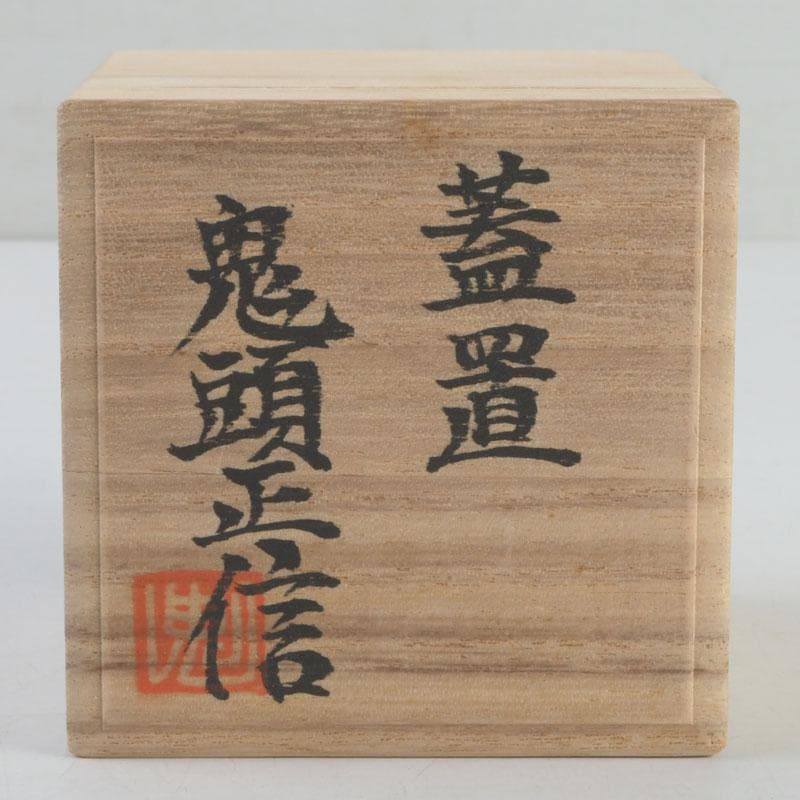 蓋置
鬼頭正信